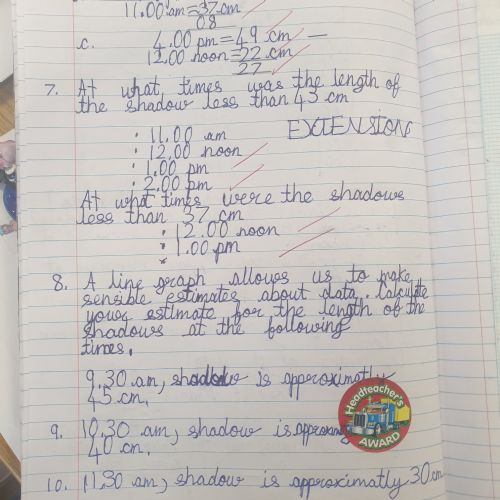 11.00 am = 37 cm
08
c. 4.00 pm = 49 cm
12.00 noon = 22 cm
27
7. At what times was the length of
the shadow less than 43 cm
EXTENSION
11.00 am
12.00 noon
1.00 pm
2.00 pm
At what times were the shadows
less than 37 cm
12.00 noon
1.00 pm
8. A line graph allows us to make
sensible estimates about data. Calculate
your estimate for the length of the
shadows at the following
times.
9.30 am, shadow is approximatly
45 cm.
9. 10.30 am, shadow is
40 cm.
Headteacher's
AWARD
10. 11.30 am, shadow is approximatly 30 cm